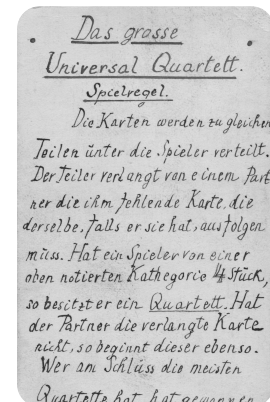 Das grosse
Universal Quartett.
Spielregel.
Die Karten werden zu gleichen
Teilen unter die Spieler verteilt.
Der Teiler verlangt von einem Part
ner die ihm fehlende Karte, die
derselbe, falls er sie hat, ausfolgen
muss. Hat ein Spieler von einer
oben notierten Kathegorie 4 Stück,
so besitzt er ein Quartett. Hat
der Partner die verlangte Karte
nicht, so beginnt dieser ebenso.
Wer am Schluss die meisten
Quartette hat, hat gewonnen